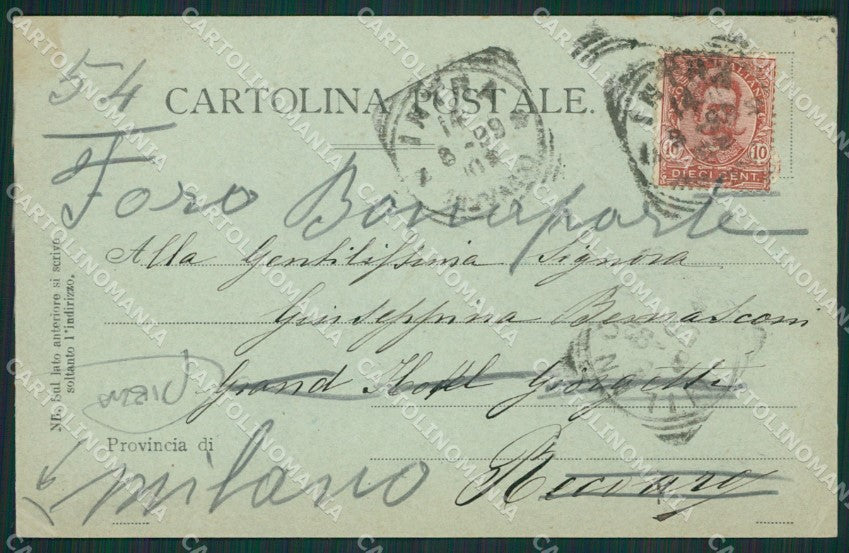 54
CARTOLINA POSTALE.
Foro Bonaparte
Alla Gentilissima Signora
Giuseppina Bernasconi
Grand Hotel Giorgetti
Recoaro
Provincia di
milano
NB. Sul lato anteriore si scrive
soltanto l'indirizzo.
INTRA
INTRA
10 10
DIECI CENT.
MILANO
CARTOLINOMANIA